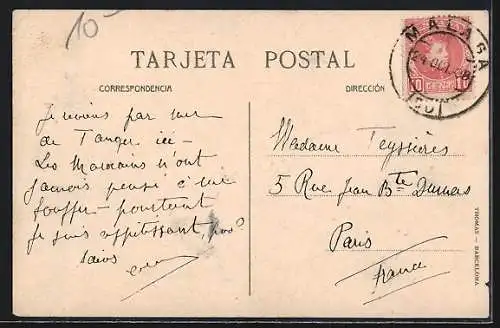 10-
TARJETA POSTAL
CORRESPONDENCIA
DIRECCIÓN
MALAGA
10 10
Je viens par mer
de Tanger ici -
Les Marocains n'ont
jamais pensé à me
bouffer - pourtant
je suis appétissant,
Madame Teyssières
5 Rue Jean Bte Dumas
Paris
France
THOMAS - BARCELONA